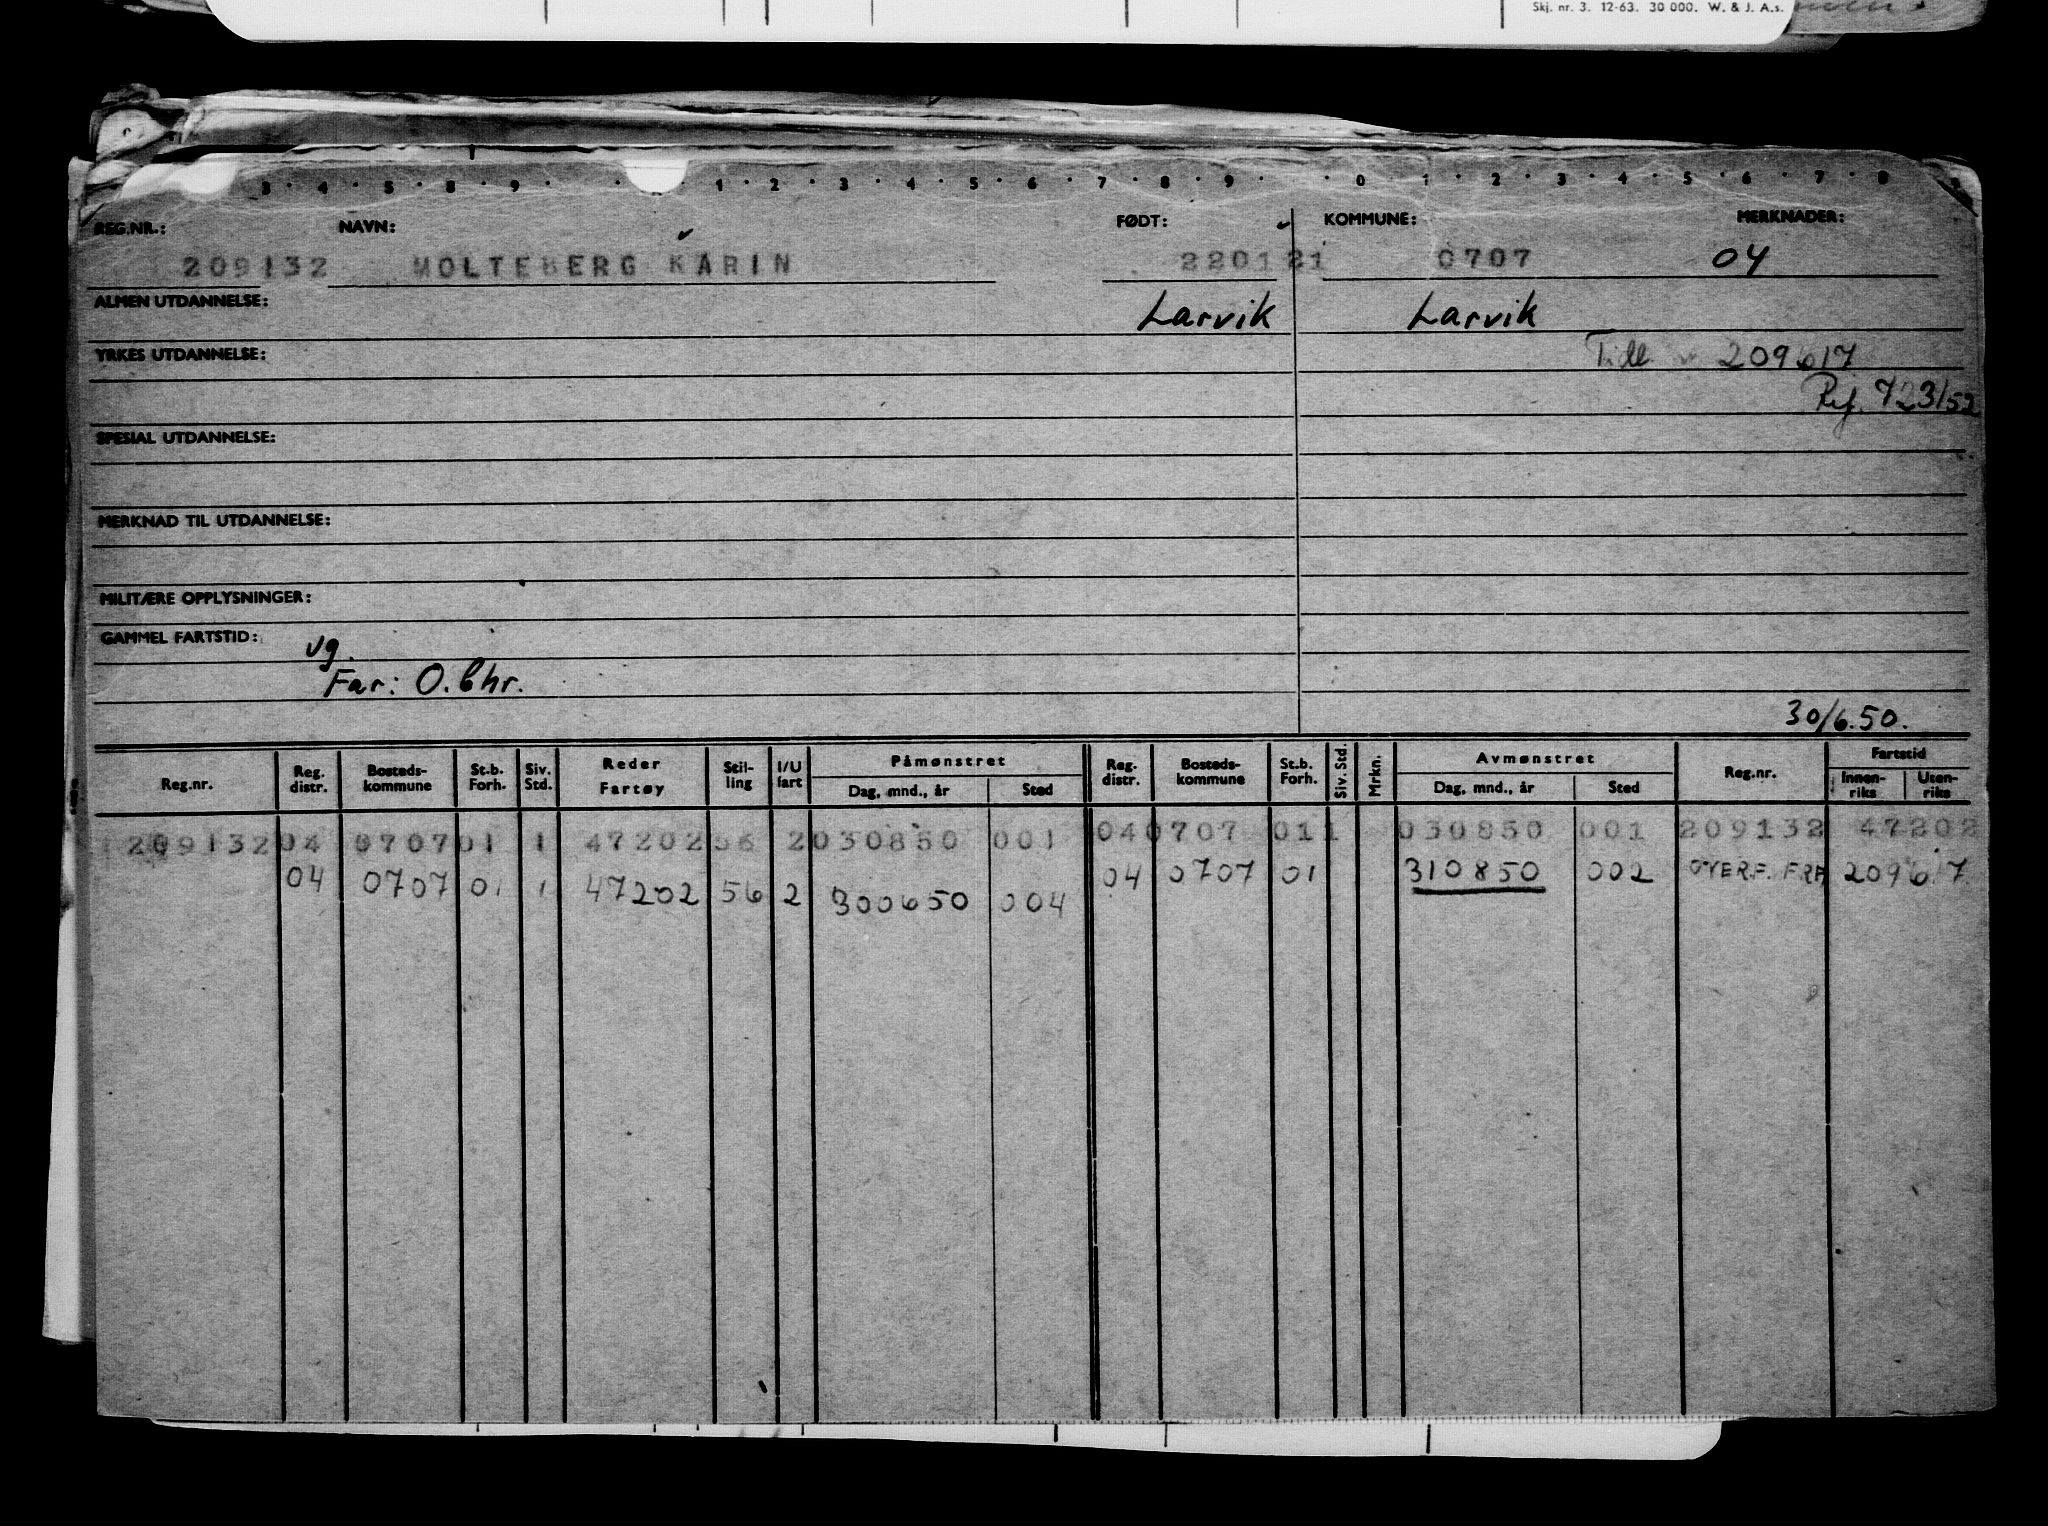 Skj. nr. 3. 12-63. 30 000. W. & J. A.s.
3 · 4 · 5 · 8 · 9 · · · 1 · 2 · 3 · 4 · 5 · 6 · 7 · 8 · 9 · · 0 · 1 · 2 · 3 · 4 · 5 · 6 · 7 · 8
REG.NR.: NAVN: FØDT: KOMMUNE: MERKNADER:
209132 MOLTEBERG KARIN 220121 0707 04
ALMEN UTDANNELSE: Larvik Larvik
YRKES UTDANNELSE: Tidl. 209617
Ref. 723/52
SPESIAL UTDANNELSE:
MERKNAD TIL UTDANNELSE:
MILITÆRE OPPLYSNINGER:
GAMMEL FARTSTID: vg.
Far: O. Chr.
30/6.50.
Reg.nr. Reg. distr. Bosteds-kommune St.b. Forh. Siv. Std. Reder Fartøy Stil-ling I/U fart Påmønstret Dag, mnd., år Sted Reg. distr. Bosteds-kommune St.b. Forh. Siv. Std. Mrkn. Avmønstret Dag, mnd., år Sted Reg.nr. Fartstid Innen-riks Uten-riks
209132 04 0707 01 1 47202 56 2 030850 001 04 0707 01 1 030850 001 209132 47202
04 0707 01 1 47202 56 2 300650 004 04 0707 01 310850 002 OVERF. FRA 209617